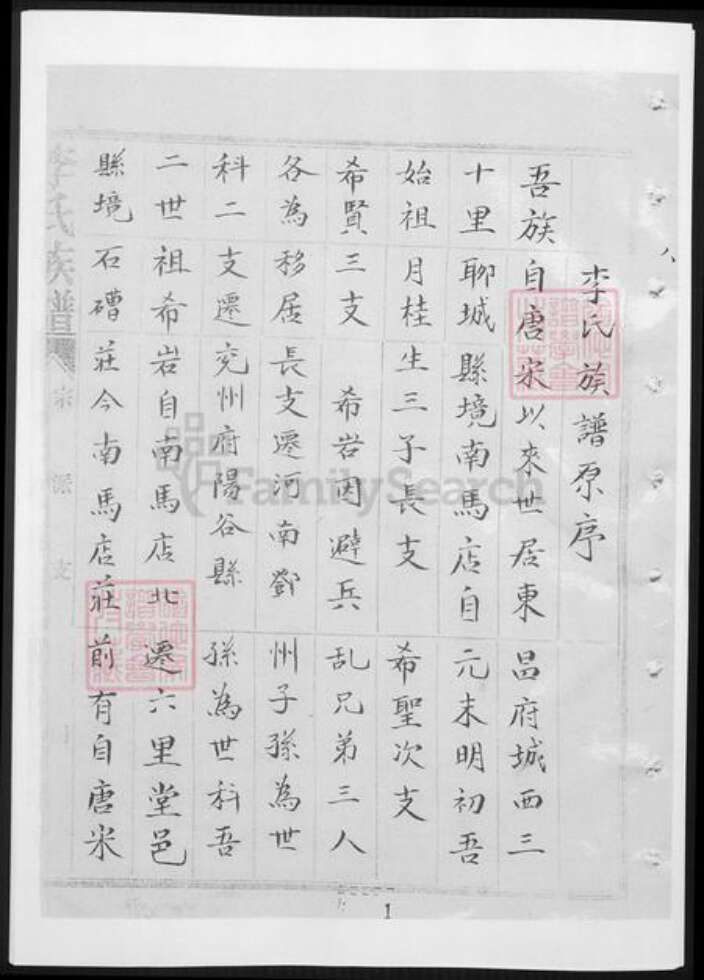 李氏族譜原序
吾族自唐宋以來世居東昌府城西三
十里聊城縣境南馬店自元末明初吾
始祖月桂生三子長支希聖次支
希賢三支希岩因避兵乱兄弟三人
各為移居長支遷河南鄧州子孫為世
科二支遷兗州府陽谷縣孫為世科吾
二世祖希岩自南馬店北遷六里堂邑
縣境石磗莊今南馬店莊前有自唐宋
李氏族譜
宗派支
FamilySearch
1